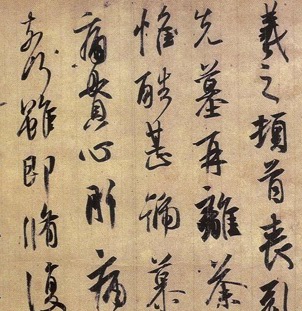 羲之頓首喪乱
先墓再離荼
惟酷甚號慕
痛貫心肝痛
奈何雖即脩復